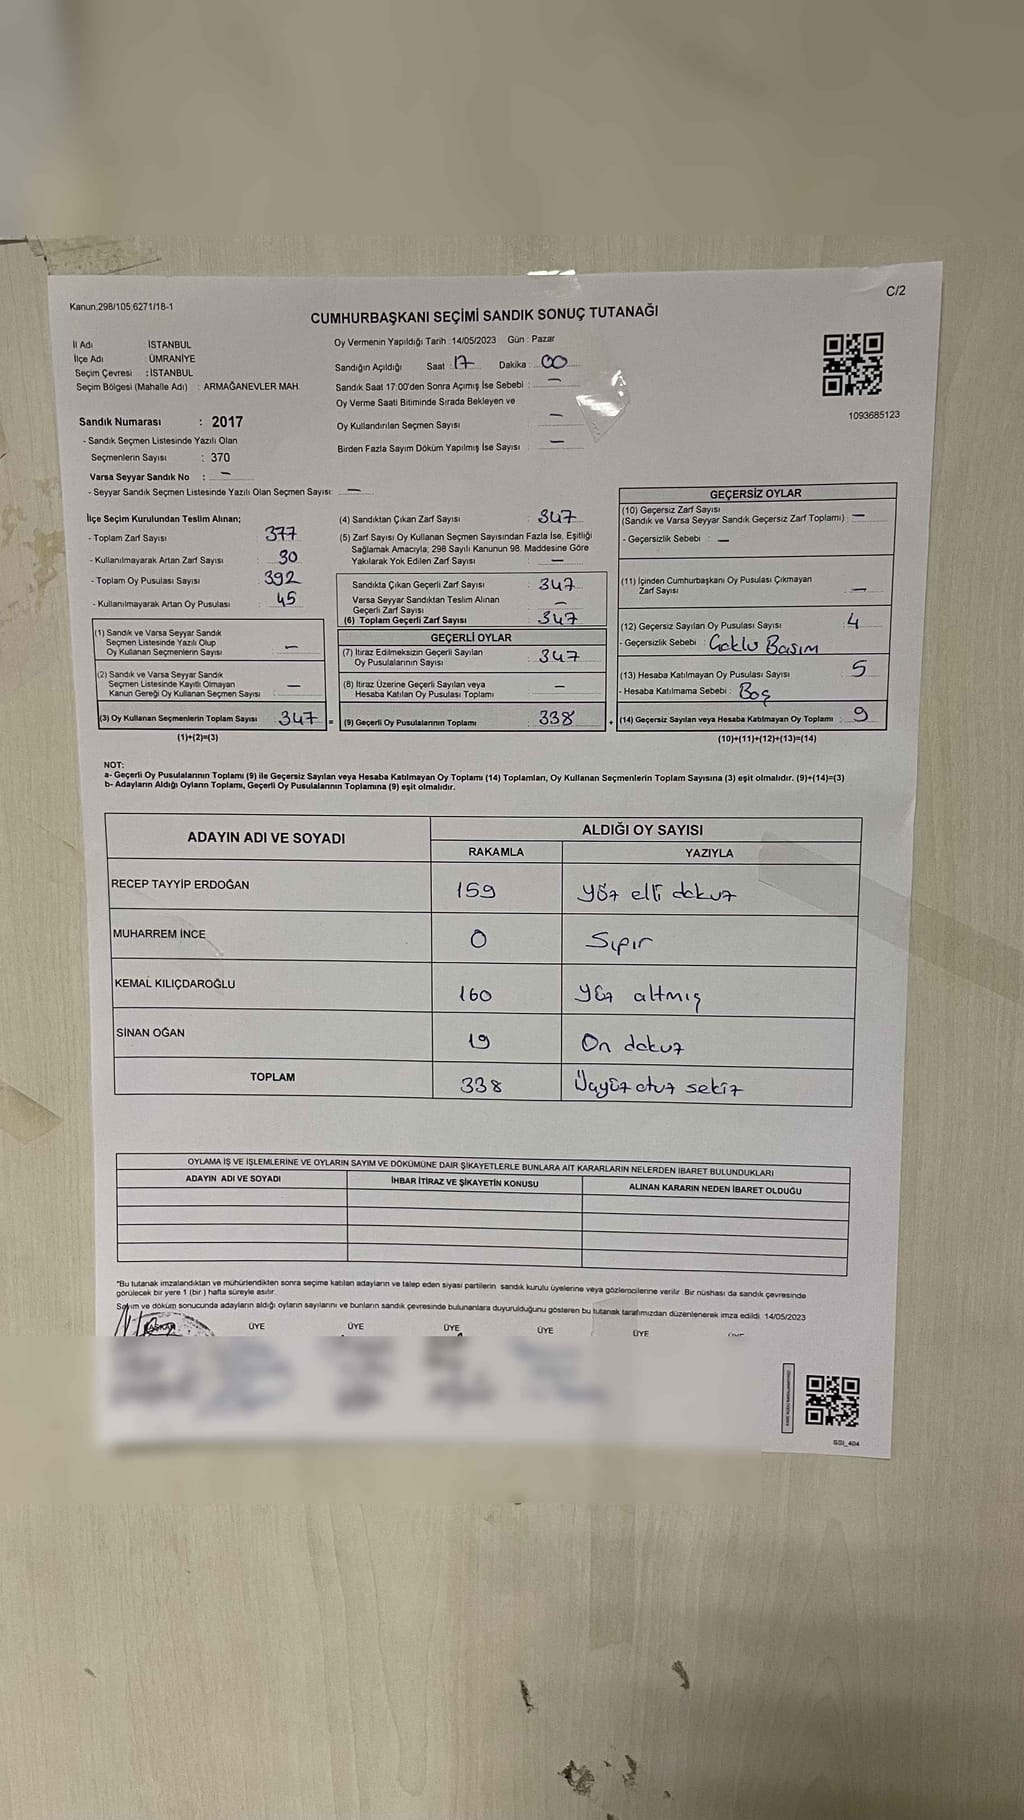 Kanun,298/105,6271/18-1
C/2
CUMHURBAŞKANI SEÇİMİ SANDIK SONUÇ TUTANAĞI
İl Adı : İSTANBUL
İlçe Adı : ÜMRANİYE
Seçim Çevresi : İSTANBUL
Seçim Bölgesi (Mahalle Adı) : ARMAĞANEVLER MAH.
Oy Vermenin Yapıldığı Tarih : 14/05/2023 Gün : Pazar
Sandığın Açıldığı Saat : 17 Dakika : 00
Sandık Saat 17:00'den Sonra Açımış İse Sebebi : —
Oy Verme Saati Bitiminde Sırada Bekleyen ve
Oy Kullandırılan Seçmen Sayısı —
Birden Fazla Sayım Döküm Yapılmış İse Sayısı : —
1093685123
Sandık Numarası : 2017
- Sandık Seçmen Listesinde Yazılı Olan
Seçmenlerin Sayısı : 370
Varsa Seyyar Sandık No : —
- Seyyar Sandık Seçmen Listesinde Yazılı Olan Seçmen Sayısı: —
İlçe Seçim Kurulundan Teslim Alınan;
- Toplam Zarf Sayısı : 377
- Kullanılmayarak Artan Zarf Sayısı : 30
- Toplam Oy Pusulası Sayısı : 392
- Kullanılmayarak Artan Oy Pusulası : 45
(1) Sandık ve Varsa Seyyar Sandık
Seçmen Listesinde Yazılı Olup
Oy Kullanan Seçmenlerin Sayısı —
(2) Sandık ve Varsa Seyyar Sandık
Seçmen Listesinde Kayıtlı Olmayan
Kanun Gereği Oy Kullanan Seçmen Sayısı —
(3) Oy Kullanan Seçmenlerin Toplam Sayısı 347 =
(1)+(2)=(3)
(4) Sandıktan Çıkan Zarf Sayısı : 347
(5) Zarf Sayısı Oy Kullanan Seçmen Sayısından Fazla İse, Eşitliği
Sağlamak Amacıyla, 298 Sayılı Kanunun 98. Maddesine Göre
Yakılarak Yok Edilen Zarf Sayısı —
Sandıkta Çıkan Geçerli Zarf Sayısı : 347
Varsa Seyyar Sandıktan Teslim Alınan
Geçerli Zarf Sayısı —
(6) Toplam Geçerli Zarf Sayısı : 347
GEÇERLİ OYLAR
(7) İtiraz Edilmeksizin Geçerli Sayılan
Oy Pusulalarının Sayısı : 347
(8) İtiraz Üzerine Geçerli Sayılan veya
Hesaba Katılan Oy Pusulası Toplamı : —
(9) Geçerli Oy Pusulalarının Toplamı : 338 +
GEÇERSİZ OYLAR
(10) Geçersiz Zarf Sayısı
(Sandık ve Varsa Seyyar Sandık Geçersiz Zarf Toplamı) : —
- Geçersizlik Sebebi : —
(11) İçinden Cumhurbaşkanı Oy Pusulası Çıkmayan
Zarf Sayısı : —
(12) Geçersiz Sayılan Oy Pusulası Sayısı : 4
- Geçersizlik Sebebi : Çoklu Basım
(13) Hesaba Katılmayan Oy Pusulası Sayısı : 5
- Hesaba Katılmama Sebebi : Boş
(14) Geçersiz Sayılan veya Hesaba Katılmayan Oy Toplamı : 9
(10)+(11)+(12)+(13)=(14)
NOT:
a- Geçerli Oy Pusulalarının Toplamı (9) ile Geçersiz Sayılan veya Hesaba Katılmayan Oy Toplamı (14) Toplamları, Oy Kullanan Seçmenlerin Toplam Sayısına (3) eşit olmalıdır. (9)+(14)=(3)
b- Adayların Aldığı Oyların Toplamı, Geçerli Oy Pusulalarının Toplamına (9) eşit olmalıdır.
ADAYIN ADI VE SOYADI
ALDIĞI OY SAYISI
RAKAMLA YAZIYLA
RECEP TAYYİP ERDOĞAN 159 Yüz elli dokuz
MUHARREM İNCE 0 Sıfır
KEMAL KILIÇDAROĞLU 160 Yüz altmış
SİNAN OĞAN 19 On dokuz
TOPLAM 338 Üçyüz otuz sekiz
OYLAMA İŞ VE İŞLEMLERİNE VE OYLARIN SAYIM VE DÖKÜMÜNE DAİR ŞİKAYETLERLE BUNLARA AİT KARARLARIN NELERDEN İBARET BULUNDUKLARI
ADAYIN ADI VE SOYADI İHBAR İTİRAZ VE ŞİKAYETİN KONUSU ALINAN KARARIN NEDEN İBARET OLDUĞU
*Bu tutanak imzalandıktan ve mühürlendikten sonra seçime katılan adayların ve talep eden siyasi partilerin sandık kurulu üyelerine veya gözlemcilerine verilir. Bir nüshası da sandık çevresinde
görülecek bir yere 1 (bir ) hafta süreyle asılır.
Sayım ve döküm sonucunda adayların aldığı oyların sayılarını ve bunların sandık çevresinde bulunanlara duyurulduğunu gösteren bu tutanak tarafımızdan düzenlenerek imza edildi. 14/05/2023
BAŞKAN ÜYE ÜYE ÜYE ÜYE ÜYE
SSI_404